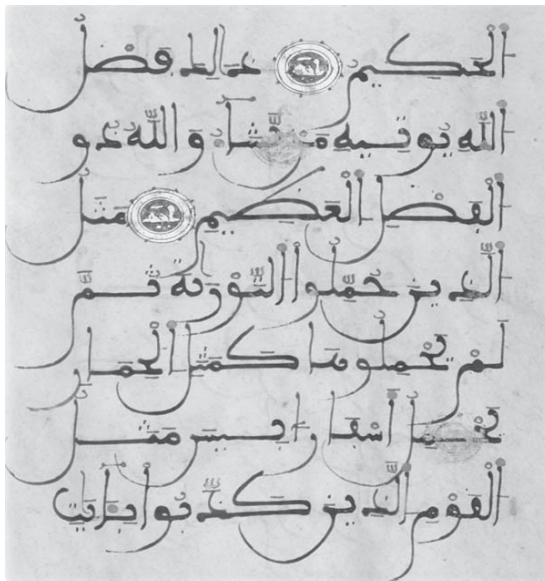 الحكيم ذلك فضل
الله يوتيه من يشا والله ذو
الفضل العظيم مثل
الذين حملوا التورية ثم
لم يحملوها كمثل الحمار
يحمل اسفارا بيس مثل
القوم الذين كذبوا بايت